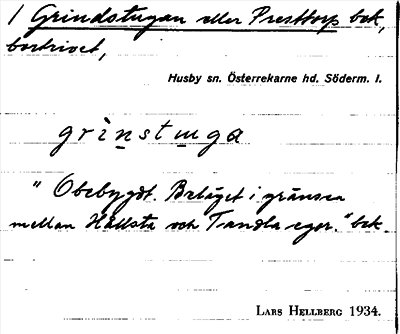 / Grindstugan eller Presttorp bek,
bortrivet,
Husby sn. Österrekarne hd. Söderm. l.
grìnstuga
"Obebygdt. Beläget i gränsen
mellan Hällsta och Tandla egor." bek.
LARS HELLBERG 1934.